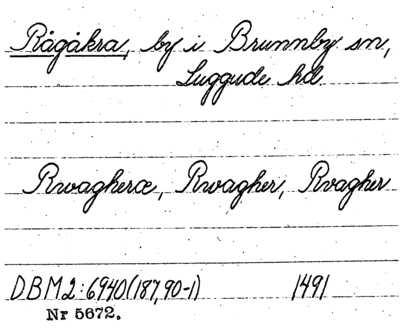 Rågåkra, by i Brunnby sn,
Luggude hd.
Rwagheræ, Rwagher, Rvagher
DBM2:6940(187,90-1) 1491
Nr 5672.